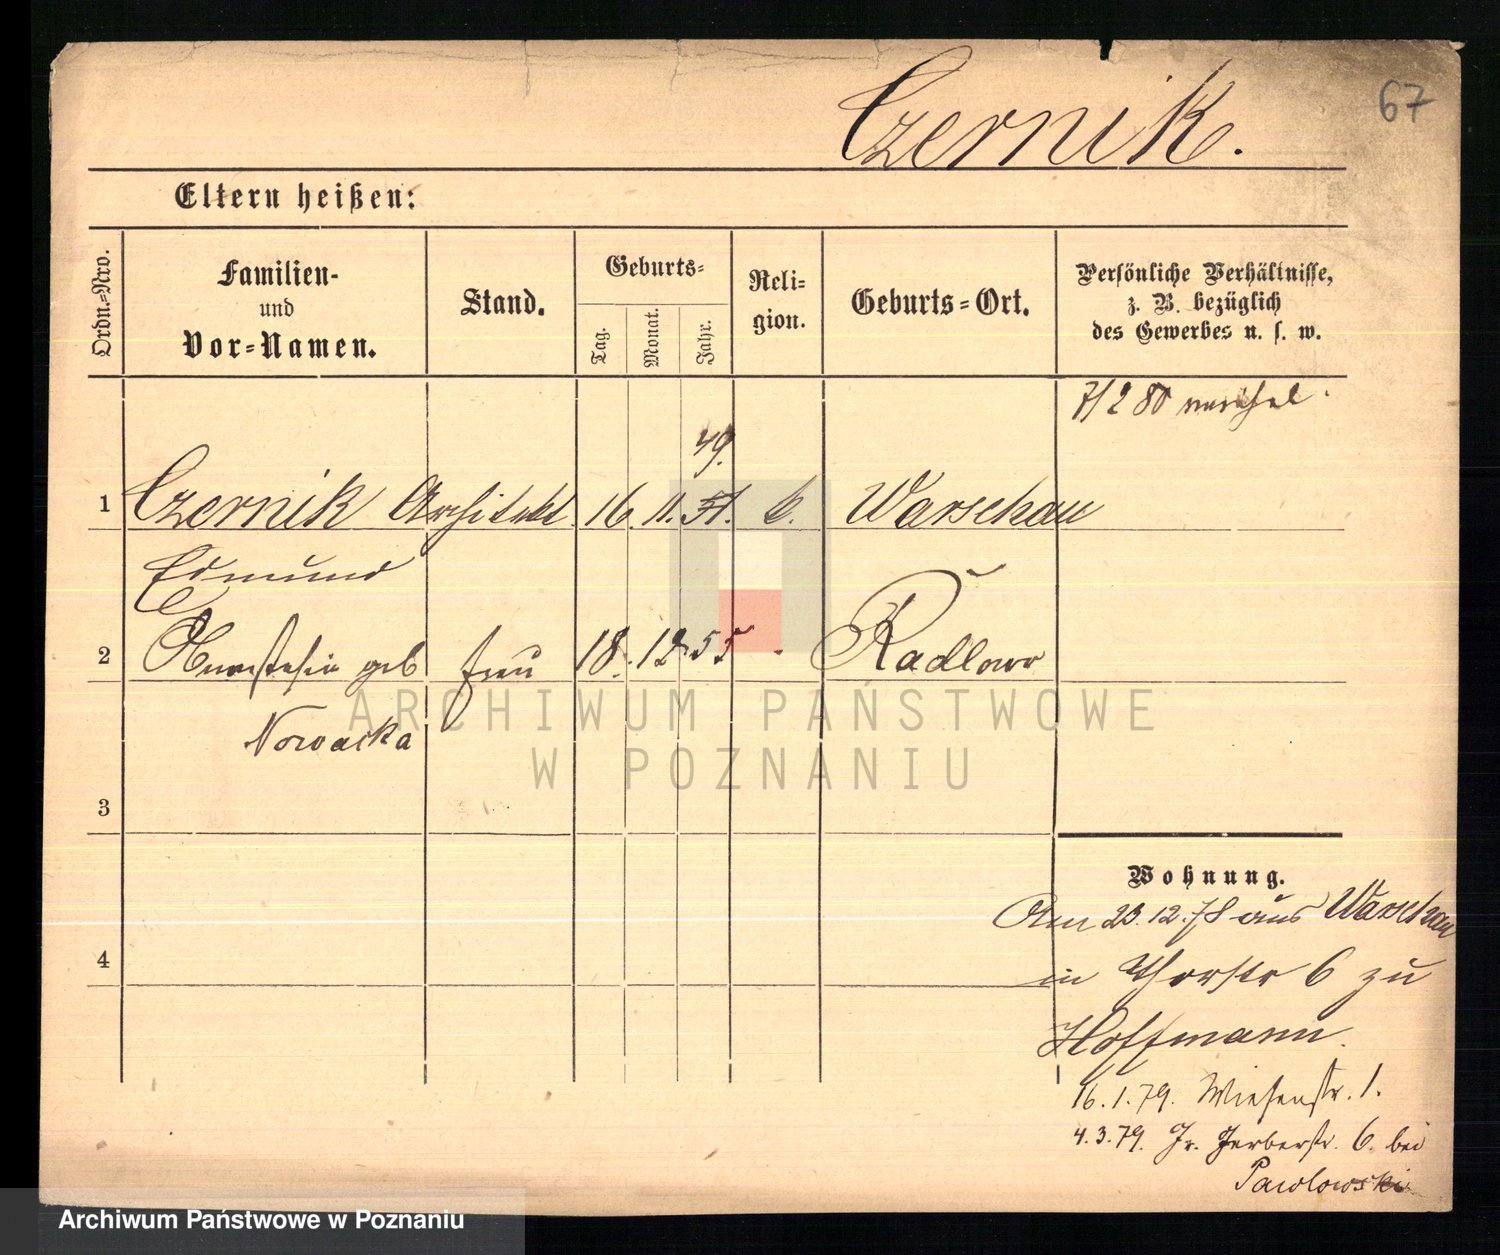 67
Czernik.
Eltern heißen:
Ordn.=Nro.
Familien-
und
Vor=Namen.
Stand.
Geburts=
Tag.
Monat.
Jahr.
Reli-
gion.
Geburts=Ort.
Persönliche Verhältnisse,
z. B. bezüglich
des Gewerbes u. s. w.
7/2 80
49.
1 Czernik Architekt 16. 11. 51. k. Warschau
Edmund
2 Anastasia geb Frau 18. 12. 55 Radlowo
Nowacka
3
4
Wohnung.
Am 23.12.78 aus Warschau
in Thorstr 6 zu
Hoffmann.
16.1.79. Wiesenstr. 1.
4.3.79. Gr. Gerberstr. 6. bei
Pawlowski
ARCHIWUM PAŃSTWOWE
W POZNANIU
Archiwum Państwowe w Poznaniu